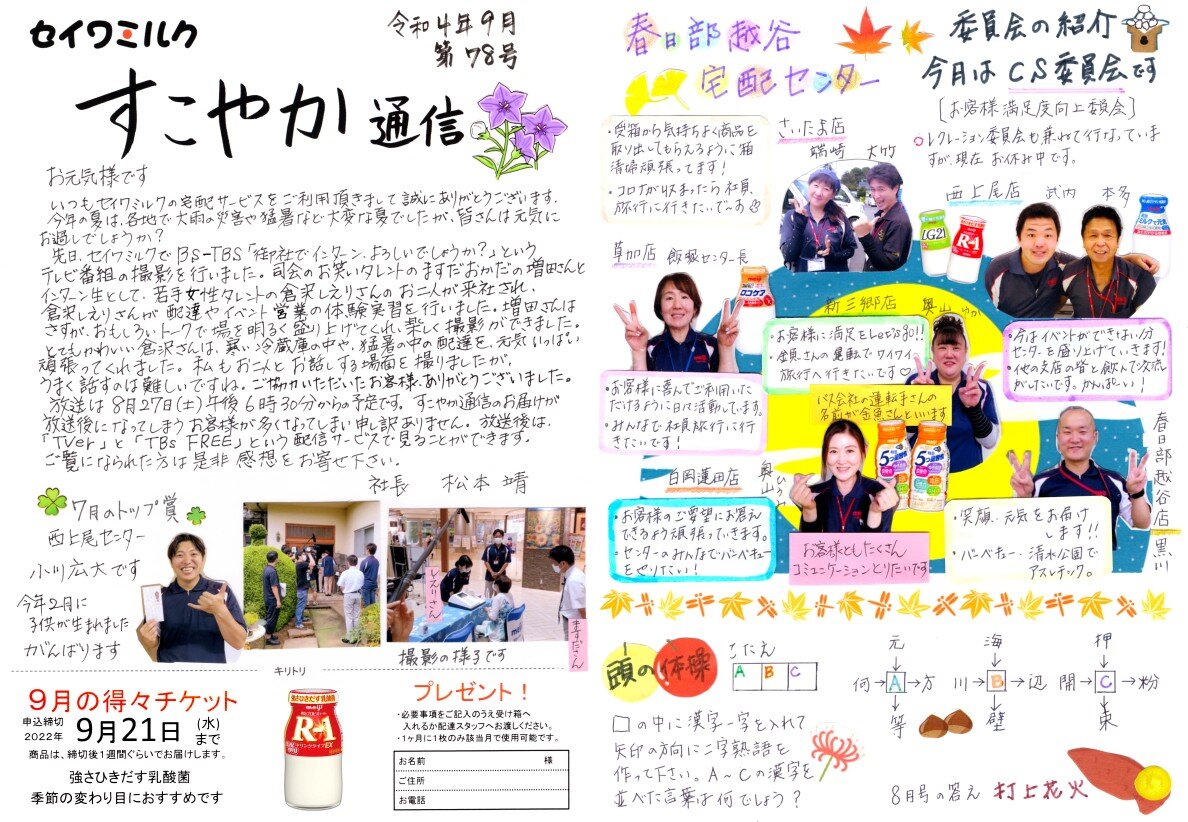 セイワミルク
令和4年9月
第78号
すこやか通信
お元気様です
いつもセイワミルクの宅配サービスをご利用頂きまして誠にありがとうございます。
今年の夏は、各地で大雨の災害や猛暑など大変な夏でしたが、皆さんは元気に
お過しでしょうか？
先日、セイワミルクでBS-TBS「御社でインターン、よろしいでしょうか？」という
テレビ番組の撮影を行いました。司会のお笑いタレントのますだおかだの増田さんと
インターン生として、若手女性タレントの倉沢しえりさんのお二人が来社され、
倉沢しえりさんが配達やイベント営業の体験実習を行いました。増田さんは
さすが、おもしろいトークで場を明るく盛り上げてくれ、楽しく撮影ができました。
とてもかわいい倉沢さんは、寒い冷蔵庫の中や、猛暑の中の配達を、元気いっぱい
頑張ってくれました。私もお二人とお話しする場面を撮りましたが、
うまく話すのは難しいですね。ご協力いただいたお客様、ありがとうございました。
放送は8月27日(土)午後6時30分からの予定です。すこやか通信のお届けが
放送後になってしまうお客様が多くなってしまい申し訳ありません。放送後は、
「TVer」と「TBS FREE」という配信サービスで見ることができます。
ご覧になられた方は是非 感想をお寄せ下さい。
社長 松本 靖
7月のトップ賞
西上尾センター
小川広大です
今年2月に
子供が生まれました
がんばります
しえりさん
ますださん
撮影の様子です
キリトリ
9月の得々チケット
申込締切
2022年 9月21日 (水)まで
商品は、締切後1週間ぐらいでお届けします。
強さひきだす乳酸菌
季節の変わり目におすすめです
強さひきだす乳酸菌
meiji
R-1
ドリンクタイプEX
プレゼント！
・必要事項をご記入のうえ受け箱へ
入れるか配達スタッフへお渡しください。
・1ヶ月に1枚のみ該当月で使用可能です。
お名前 様
ご住所
お電話
春日部越谷
宅配センター
委員会の紹介
今月はCS委員会です
[お客様満足度向上委員会]
○レクレーション委員会も兼ねて行なっていま
すが、現在 お休み中です。
・受箱から気持ちよく商品を
取り出してもらえるようにご箱
清掃頑張ってます！
・コロナが収まったら社員
旅行に行きたいです
さいたま店
端崎 大竹
西上尾店 武内 本多
LG21
R-1
草加店 飯飯センター長
ロコケア
新三郷店 奥山 ゆか
・お客様に満足をLet's go!!
・金魚さんの運転でワイワイ
旅行へ行きたいです♡
バス会社の運転手さんの
名前が金魚さんといいます
・今はイベントができない分
センターを盛り上げていきます！
・他の支店の皆と飲んで交流
がしたいです。かんぱーい！
・お客様に喜んでご利用いた
だけるように日々活動しています。
・みんなで社員旅行に行
きたいです！
白岡蓮田店
・お客様のご要望にお答え
できるよう頑張っていきます。
・センターのみんなでバーベキュー
をやりたい！
お客様ともたくさん
コミュニケーションとりたいです
春日部越谷店 黒川
・笑顔、元気をお届け
します!!
・バーベキュー、清水公園で
アスレチック。
頭の体操
こたえ
A B C
□の中に漢字一字を入れて
矢印の方向に二字熟語を
作って下さい。A～Cの漢字を
並べた言葉は何でしょう？
元 海 押
何→A→方 川→B→辺 開→C→粉
等 壁 束
8月号の答え 打上花火